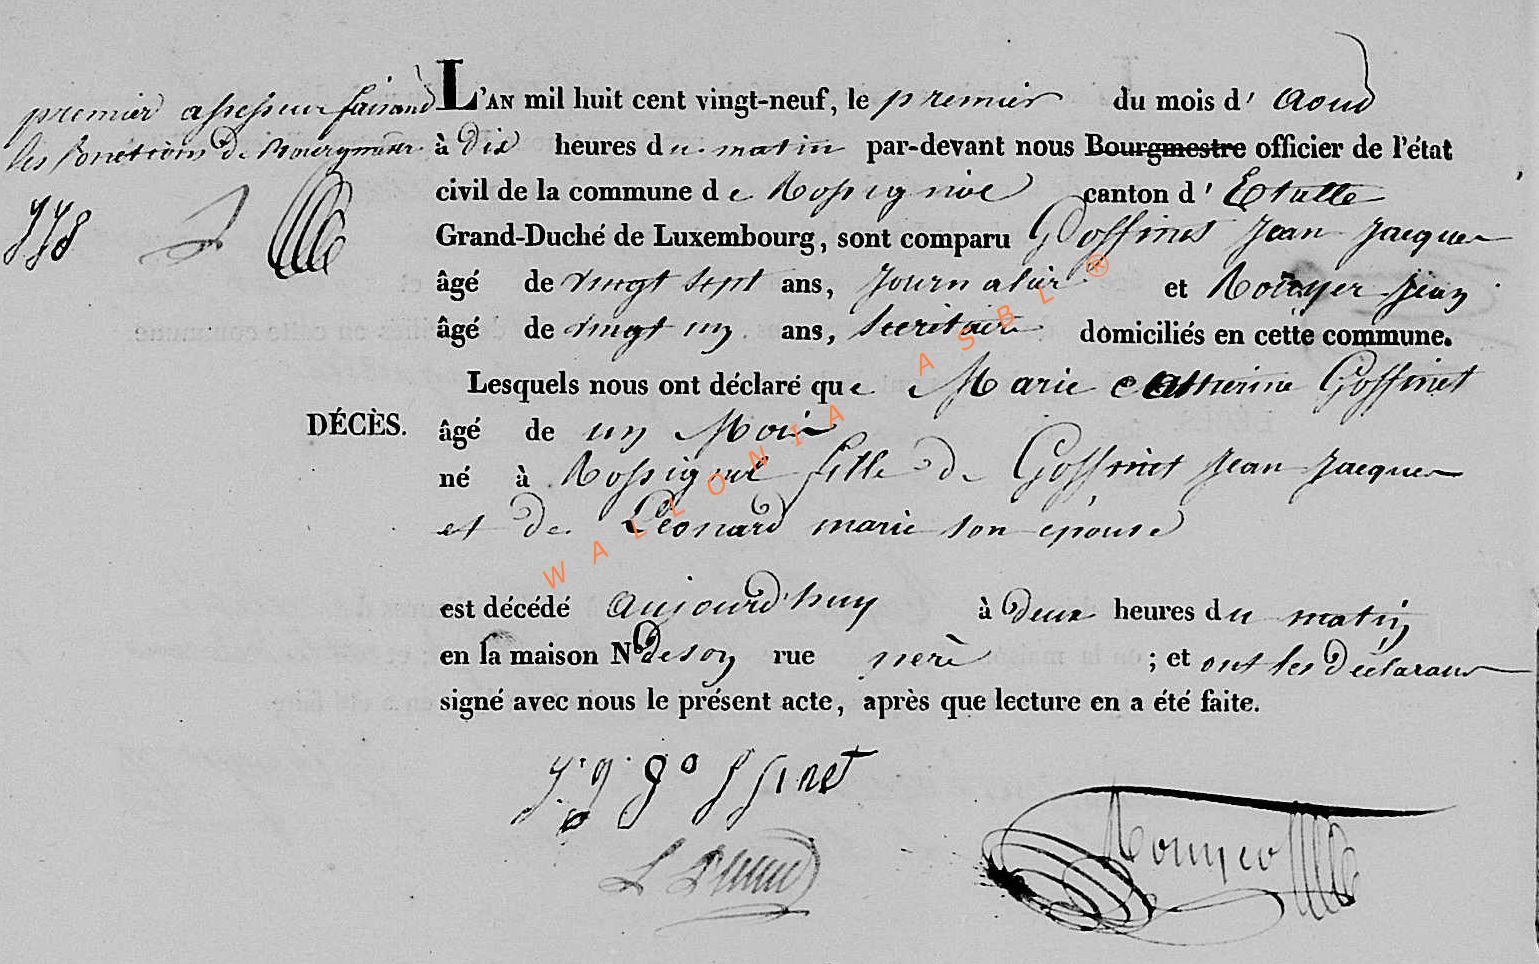 premier assesseur faisand
les fonctions de Bourgmestre
L'AN mil huit cent vingt-neuf, le premier du mois d' aoud
à dix heures du matin par-devant nous Bourgmestre officier de l'état
civil de la commune de Rossignol canton d' Etalle
Grand-Duché de Luxembourg, sont comparu Goffinet Jean Jacques
âgé de vingt sept ans, Journalier et Rouyer Jean
âgé de vingt un ans, Secrétaire domiciliés en cette commune.
Lesquels nous ont déclaré que Marie Catherine Goffinet
DÉCÈS.
âgé de un Mois
né à Rossignol fille de Goffinet Jean Jacques
et de Léonard marie son épouse
est décédé aujourd'huy à deux heures du matin
en la maison N° de son rue perè ; et ont les déclarans
signé avec nous le présent acte, après que lecture en a été faite.
J. J. Goffinet
Rouyer
WALLONIA ASBL ®